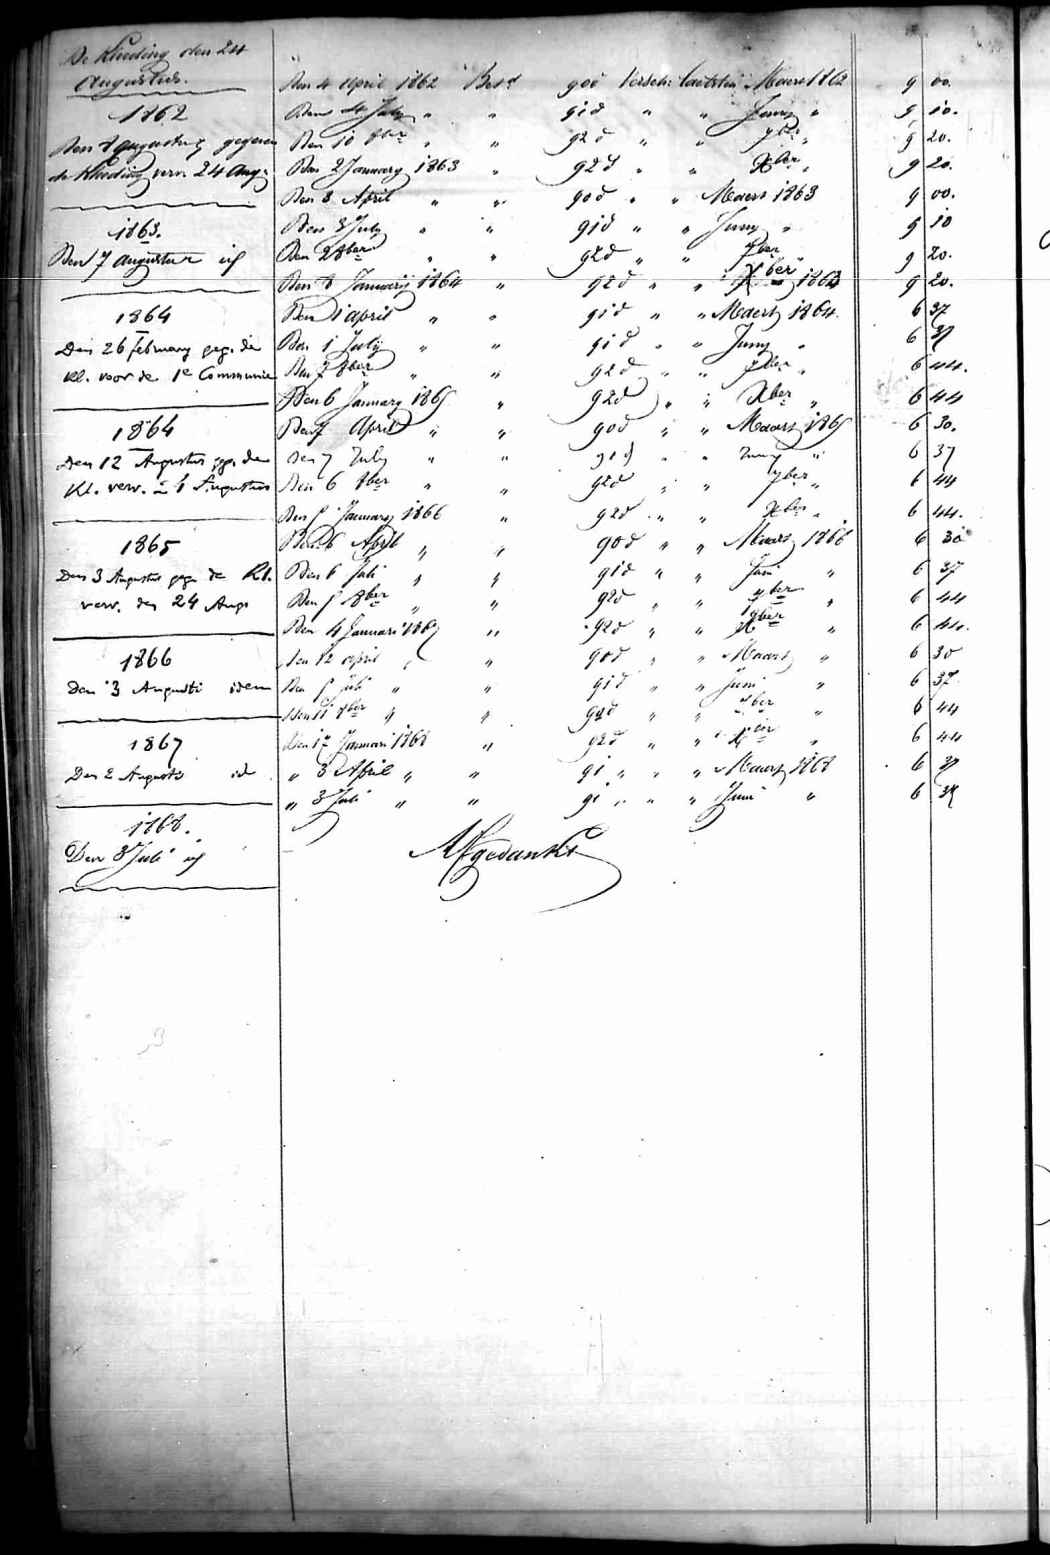 De Kleeding den 24
Augustus.
1862
Den 7 augustus gegeven
de kleeding verv. 24 Aug.
1863.
Den 7 augustus id
1864
Den 26 february geg. die
kl. voor de 1e Communie
1864
Den 12 Augustus geg. de
Kl. verv. 24 Augustus
1865
Den 3 Augustus gege de Kl.
verv. den 24 Augs
1866
Den 3 Augusti idem
1867
Den 2 Augusti id
1868.
Den 3 Juli id
Den 4 April 1862 Betd 90d versch: laatsten Maart 1862 9 00.
Den 4 July " " 91d " " Juny " 9 10.
Den 10 8ber " " 92d " " 7ber " 9 20.
Den 2 January 1863 " 92d " " Xber " 9 20.
Den 3 April " " 90d " " Maart 1863 9 00.
Den 3 July " " 91d " " Juny " 9 10
Den 2 8ber " " 92d " " 7ber " 9 20.
Den 8 January 1864 " 92d " " Xber 1863 9 20.
Den 1 april " " 91d " " Maart 1864. 6 37
Den 1 July " " 91d " " Juny " 6 37
Den 7 8ber " " 92d " " 7ber " 6 44.
Den 6 January 1865 " 92d " " Xber " 6 44
Den 7 April " " 90d " " Maart 1865 6 30.
Den 7 July " " 91d " " Juny " 6 37
Den 6 8ber " " 92d " " 7ber " 6 44
Den 5 January 1866 " 92d " " Xber " 6 44.
Den 6 April " " 90d " " Maart 1866 6 30
Den 6 Juli " " 91d " " Juni " 6 37
Den 5 8ber " " 92d " " 7ber " 6 44
Den 4 Januari 1867 " 92d " " Xber " 6 44.
Den 12 april " " 90d " " Maart " 6 30
Den 5 Juli " " 91d " " Juni " 6 37
Den 11 8ber " " 92d " " 7ber " 6 44
Den 17 Januari 1868 " 92d " " Xber " 6 44
" 3 April " " 91 " " " Maart 1868 6 37
" 3 Juli " " 91 " " " Juni " 6 37
Afgedankt